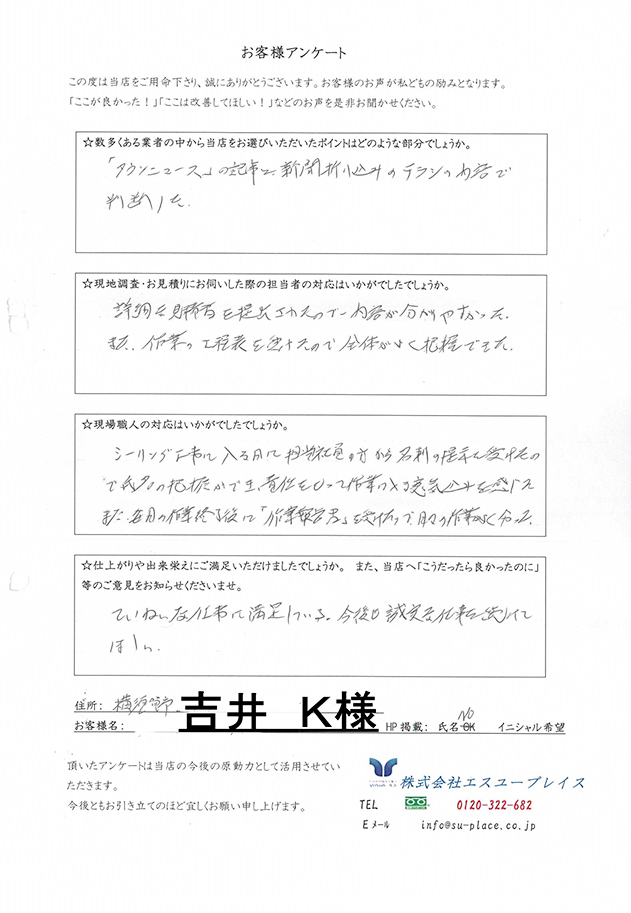 お客様アンケート
この度は当店をご用命下さり、誠にありがとうございます。お客様のお声が私どもの励みとなります。
「ここが良かった！」「ここは改善してほしい！」などのお声を是非お聞かせください。
☆数多くある業者の中から当店をお選びいただいたポイントはどのような部分でしょうか。
「タウンニュース」の記事と新聞折り込みのチラシの内容で
判断した。
☆現地調査・お見積りにお伺いした際の担当者の対応はいかがでしたでしょうか。
詳細な見積書を提示されたので内容が分かりやすかった。
また、作業の工程表を頂けたので全体がよく把握できた。
☆現場職人の対応はいかがでしたでしょうか。
シーリング工事に入る日に担当社員の方から名刺の提示を受けたの
で氏名の把握ができ、責任をもって作業に入る意気込みを感じた
また、毎日の作業終了後に「作業報告書」を受けたので日々の作業がよく分った。
☆仕上がりや出来栄えにご満足いただけましたでしょうか。 また、当店へ「こうだったら良かったのに」
等のご意見をお知らせくださいませ。
ていねいな仕事に満足している。今後も誠実な仕事を続けて
ほしい。
住所： 横須賀市
お客様名： 吉井 K様 HP掲載： 氏名OK NO イニシャル希望
頂いたアンケートは当店の今後の原動力として活用させてい
ただきます。
今後ともお引き立てのほど宜しくお願い申し上げます。
株式会社エスユープレイス
TEL 0120-322-682
Eメール info@su-place.co.jp